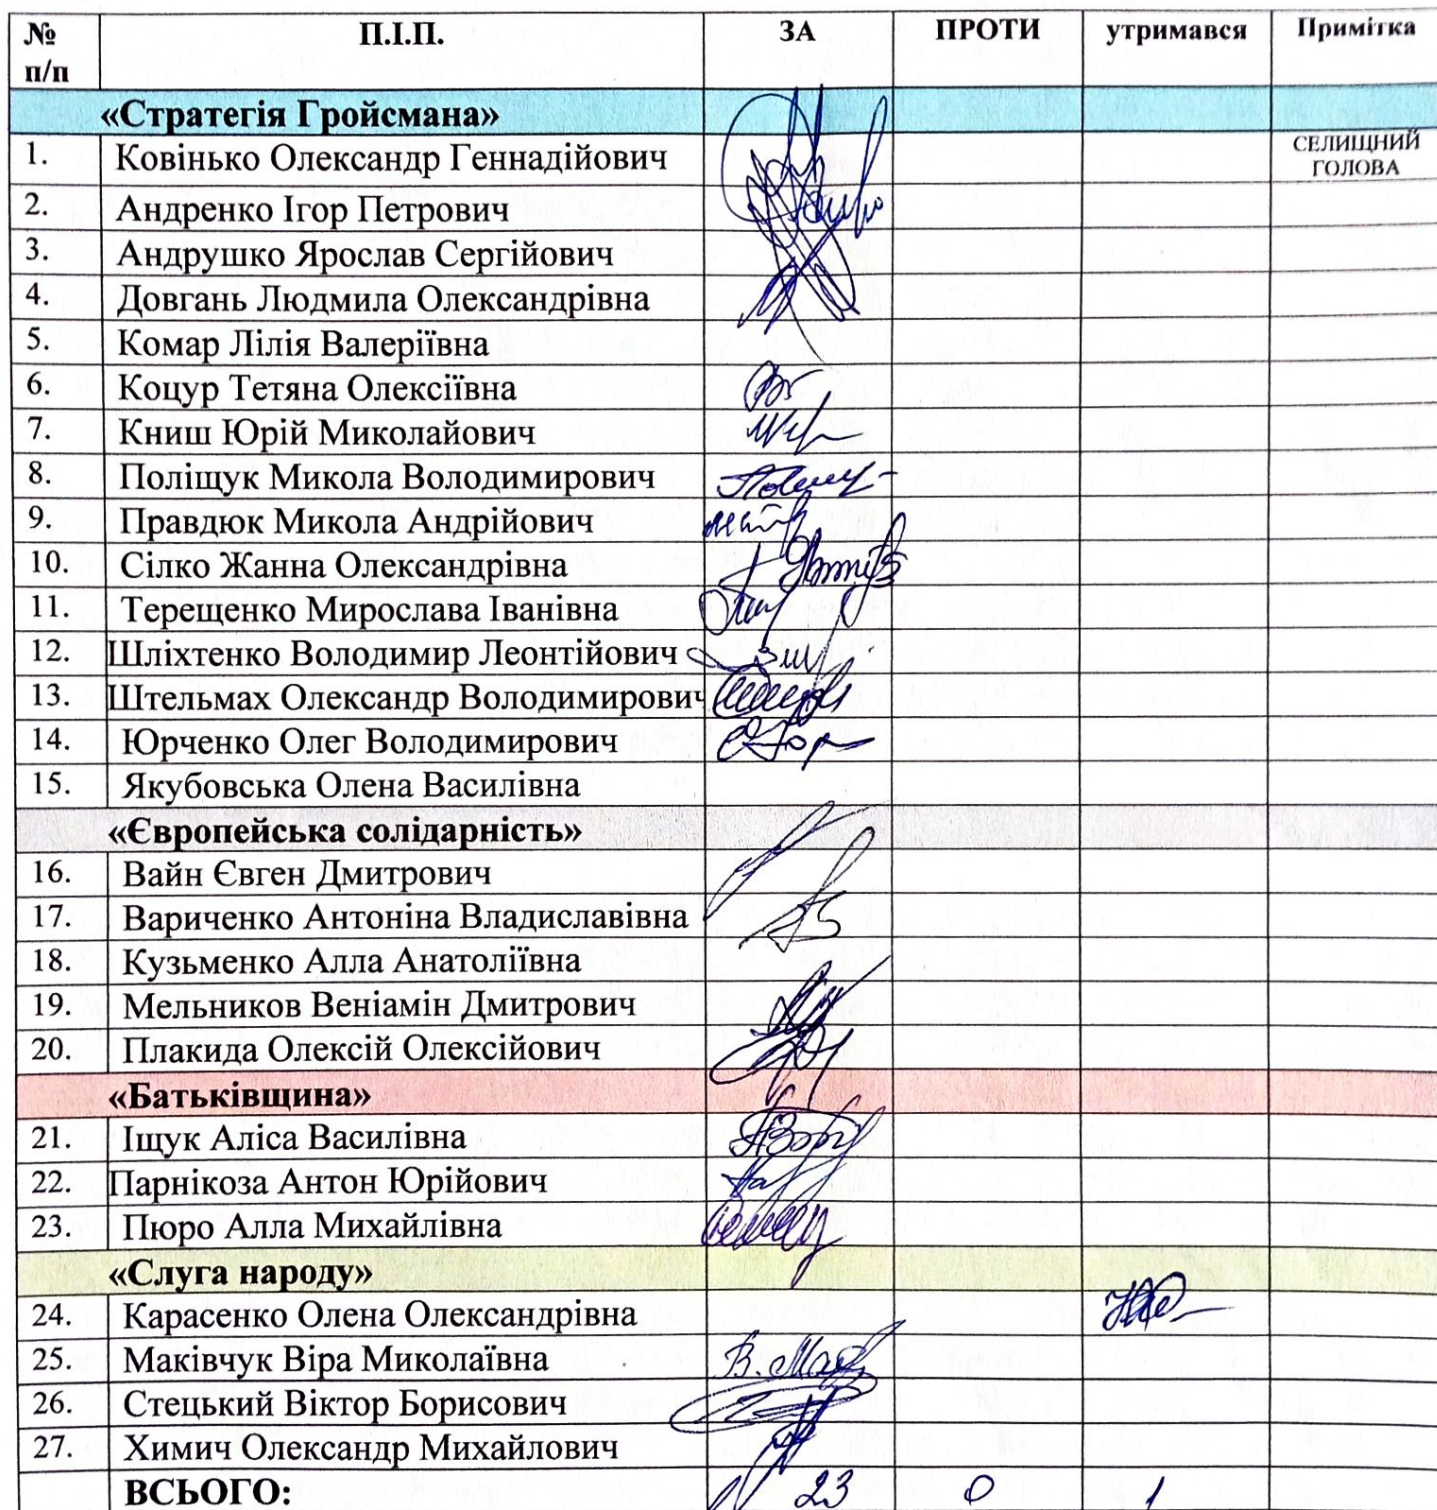 № п/п П.І.П. ЗА ПРОТИ утримався Примітка
«Стратегія Гройсмана»
1. Ковінько Олександр Геннадійович СЕЛИЩНИЙ ГОЛОВА
2. Андренко Ігор Петрович
3. Андрушко Ярослав Сергійович
4. Довгань Людмила Олександрівна
5. Комар Лілія Валеріївна
6. Коцур Тетяна Олексіївна
7. Книш Юрій Миколайович
8. Поліщук Микола Володимирович
9. Правдюк Микола Андрійович
10. Сілко Жанна Олександрівна
11. Терещенко Мирослава Іванівна
12. Шліхтенко Володимир Леонтійович
13. Штельмах Олександр Володимирович
14. Юрченко Олег Володимирович
15. Якубовська Олена Василівна
«Європейська солідарність»
16. Вайн Євген Дмитрович
17. Вариченко Антоніна Владиславівна
18. Кузьменко Алла Анатоліївна
19. Мельников Веніамін Дмитрович
20. Плакида Олексій Олексійович
«Батьківщина»
21. Іщук Аліса Василівна
22. Парнікоза Антон Юрійович
23. Пюро Алла Михайлівна
«Слуга народу»
24. Карасенко Олена Олександрівна
25. Маківчук Віра Миколаївна
26. Стецький Віктор Борисович
27. Химич Олександр Михайлович
ВСЬОГО: 23 0 1